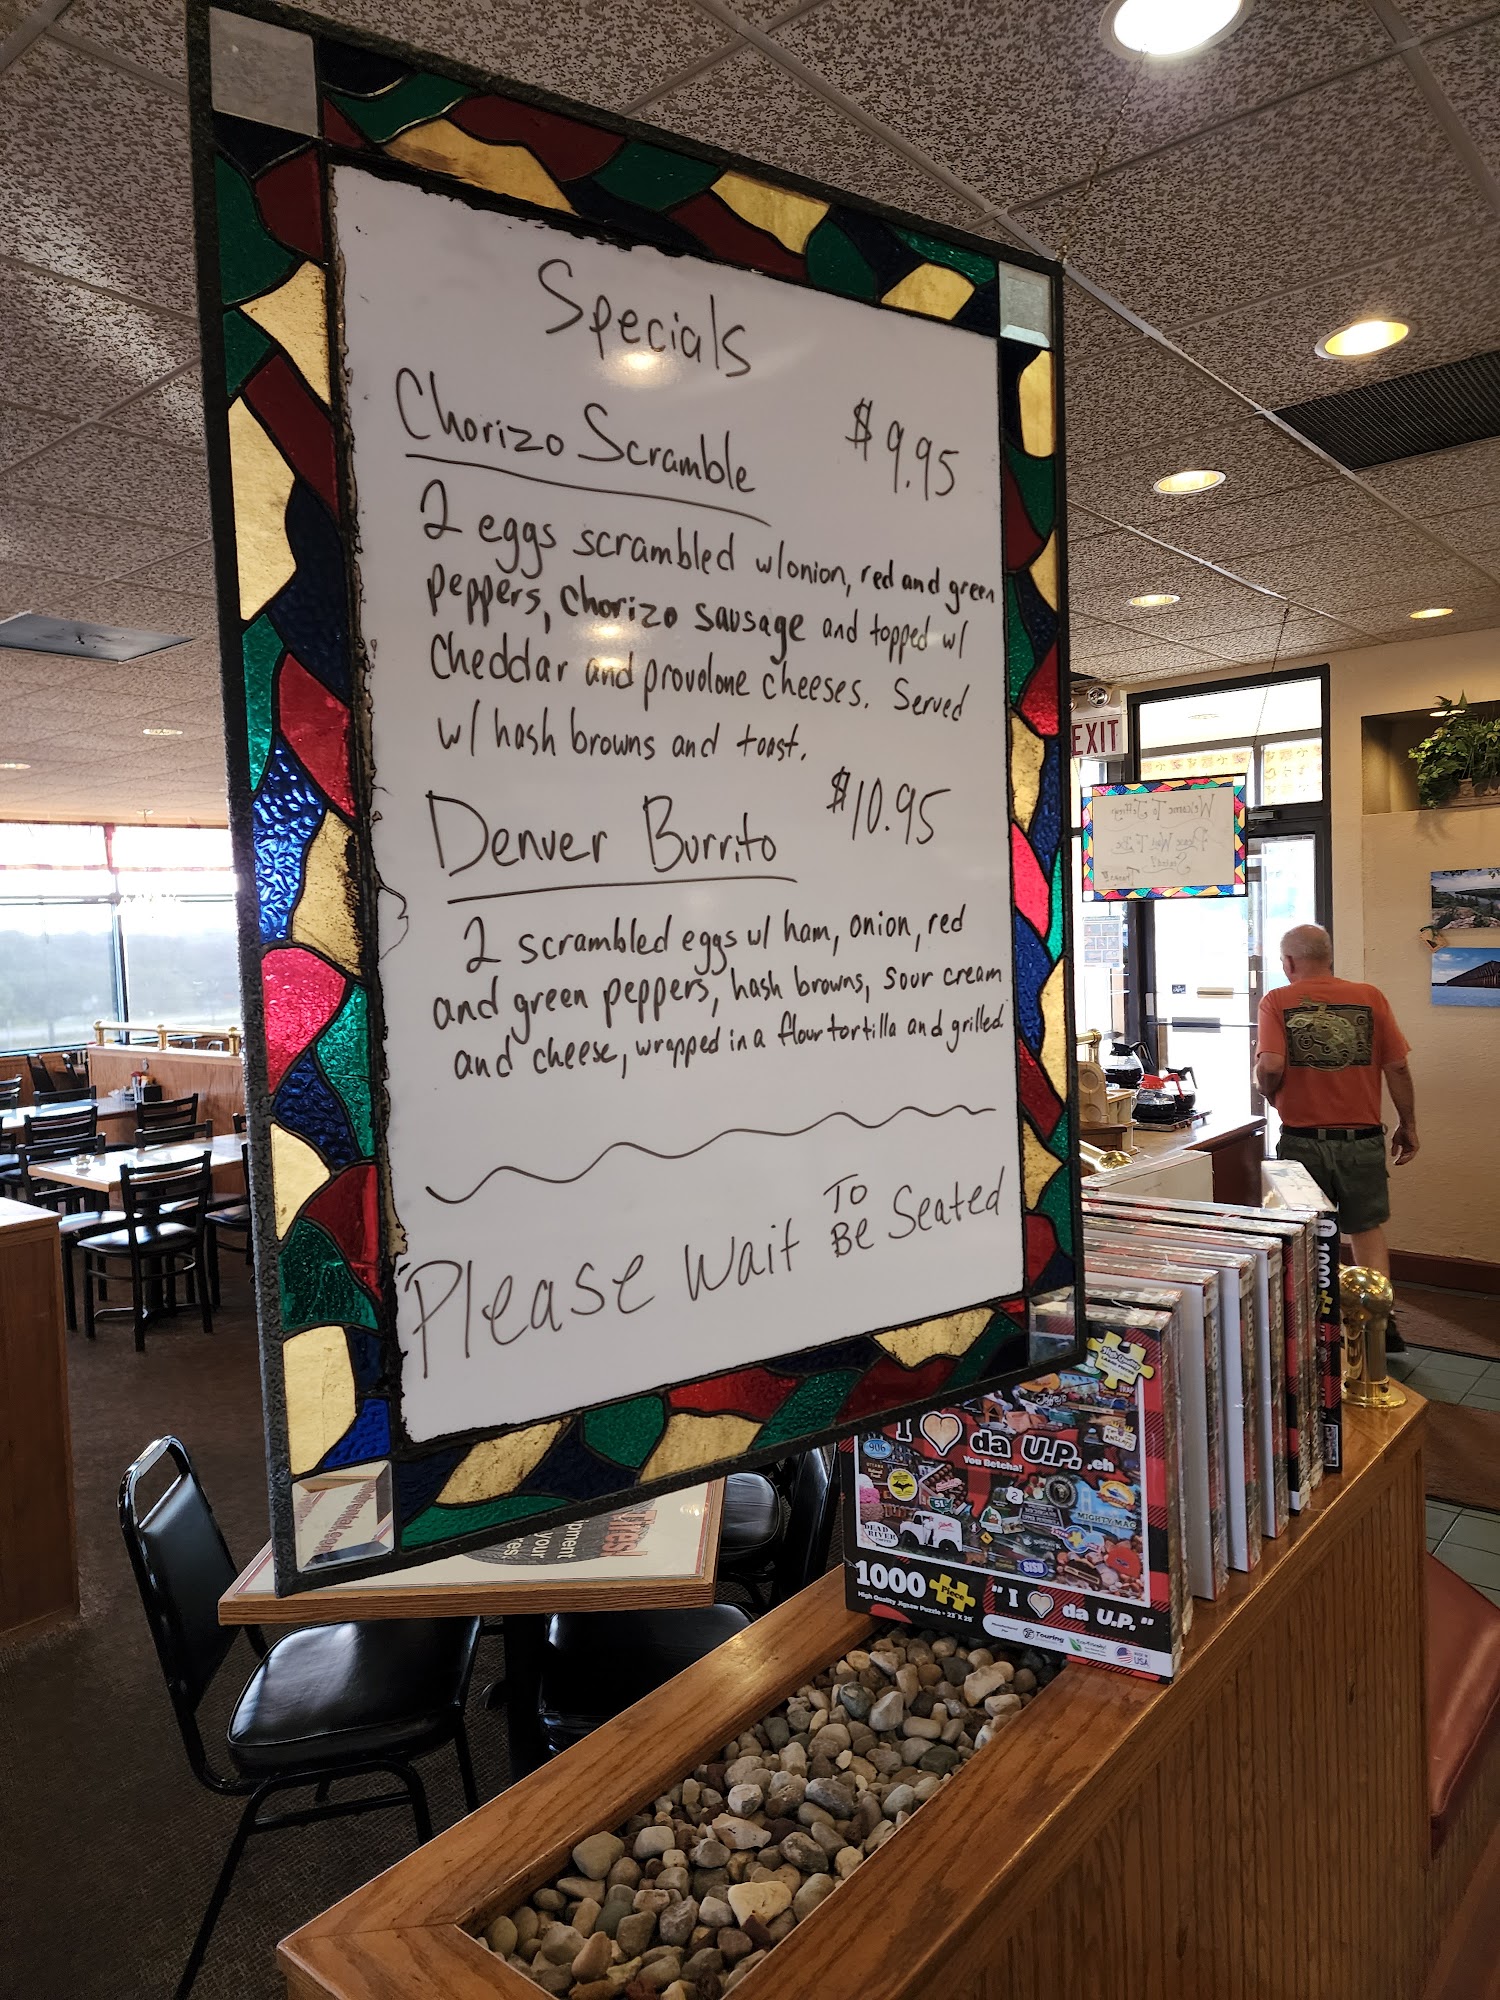 Specials
Chorizo Scramble $9.95
2 eggs scrambled w/onion, red and green
peppers, chorizo sausage and topped w/
cheddar and provolone cheeses. Served
w/ hash browns and toast.
Denver Burrito $10.95
2 scrambled eggs w/ ham, onion, red
and green peppers, hash browns, sour cream
and cheese, wrapped in a flour tortilla and grilled.
Please Wait TO BE Seated
EXIT
Welcome To Jeffreys
Please Wait To Be
Seated!
Thanks!!!
I da U.P. .eh
You Betcha!
906
51
2
DEAD
RIVER
MIGHTY MAC
SISU
1000 Piece
High Quality Jigsaw Puzzle • 23" X 28"
"I da U.P."
Touring
USA
1000